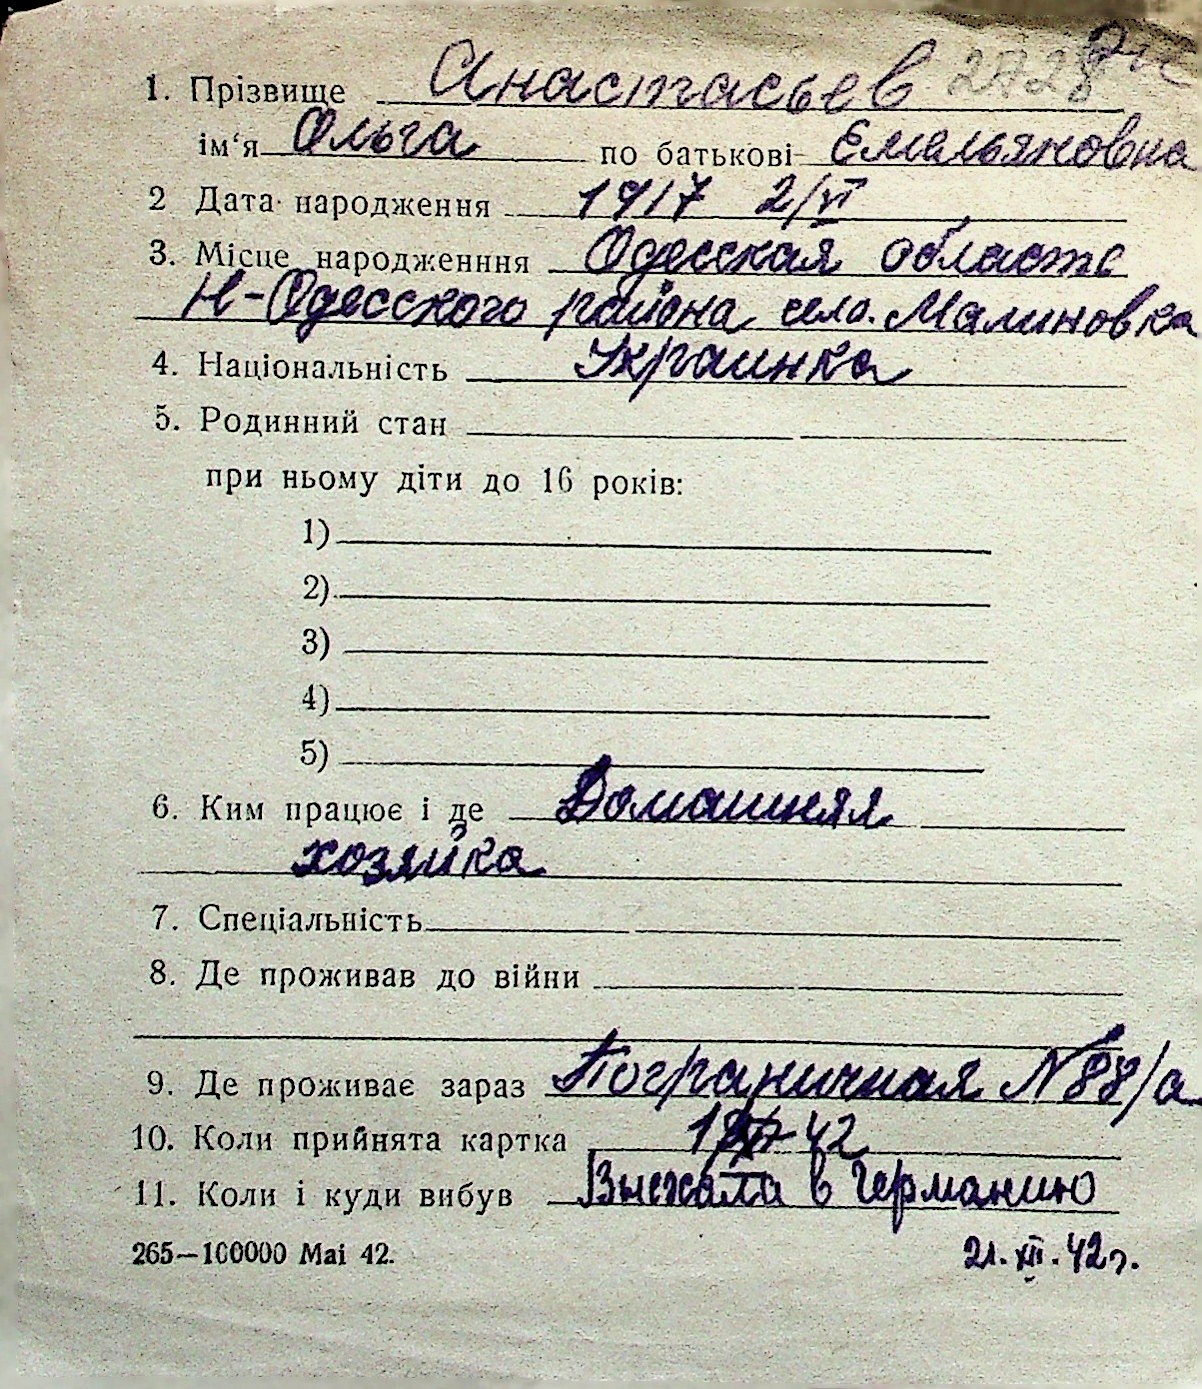 1. Прізвище Анастасьев 2728
ім'я Ольга по батькові Емельяновна
2 Дата народження 1917 2/VI
3. Місце народженння Одесская область
Н-Одесского района село. Малиновка
4. Національність Украинка
5. Родинний стан
при ньому діти до 16 років:
1)
2)
3)
4)
5)
6. Ким працює і де Домашняя
хозяйка
7. Спеціальність
8. Де проживав до війни
9. Де проживає зараз Пограничная N 88/а
10. Коли прийнята картка 42
11. Коли і куди вибув Выехала в Германию
265—100000 Mai 42. 21.XII.42г.